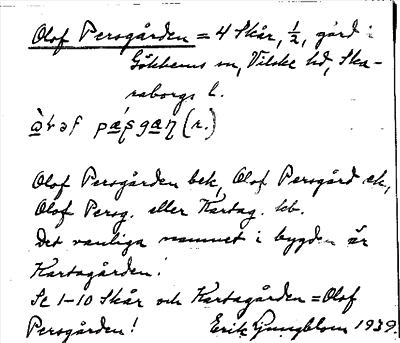 Olof Persgården = 4 Skår, 1/2, gård i
Gökhems sn, Vilske hd, Ska-
raborgs l.
(r.)
Olof Persgården bek, Olof Persgård ek,
Olof Persg. eller Kartag. kb.
Det vanliga namnet i bygden är
Kartagården!
Se 1-10 Skår och Kartagården = Olof
Persgården! Erik Ljungblom 1939.